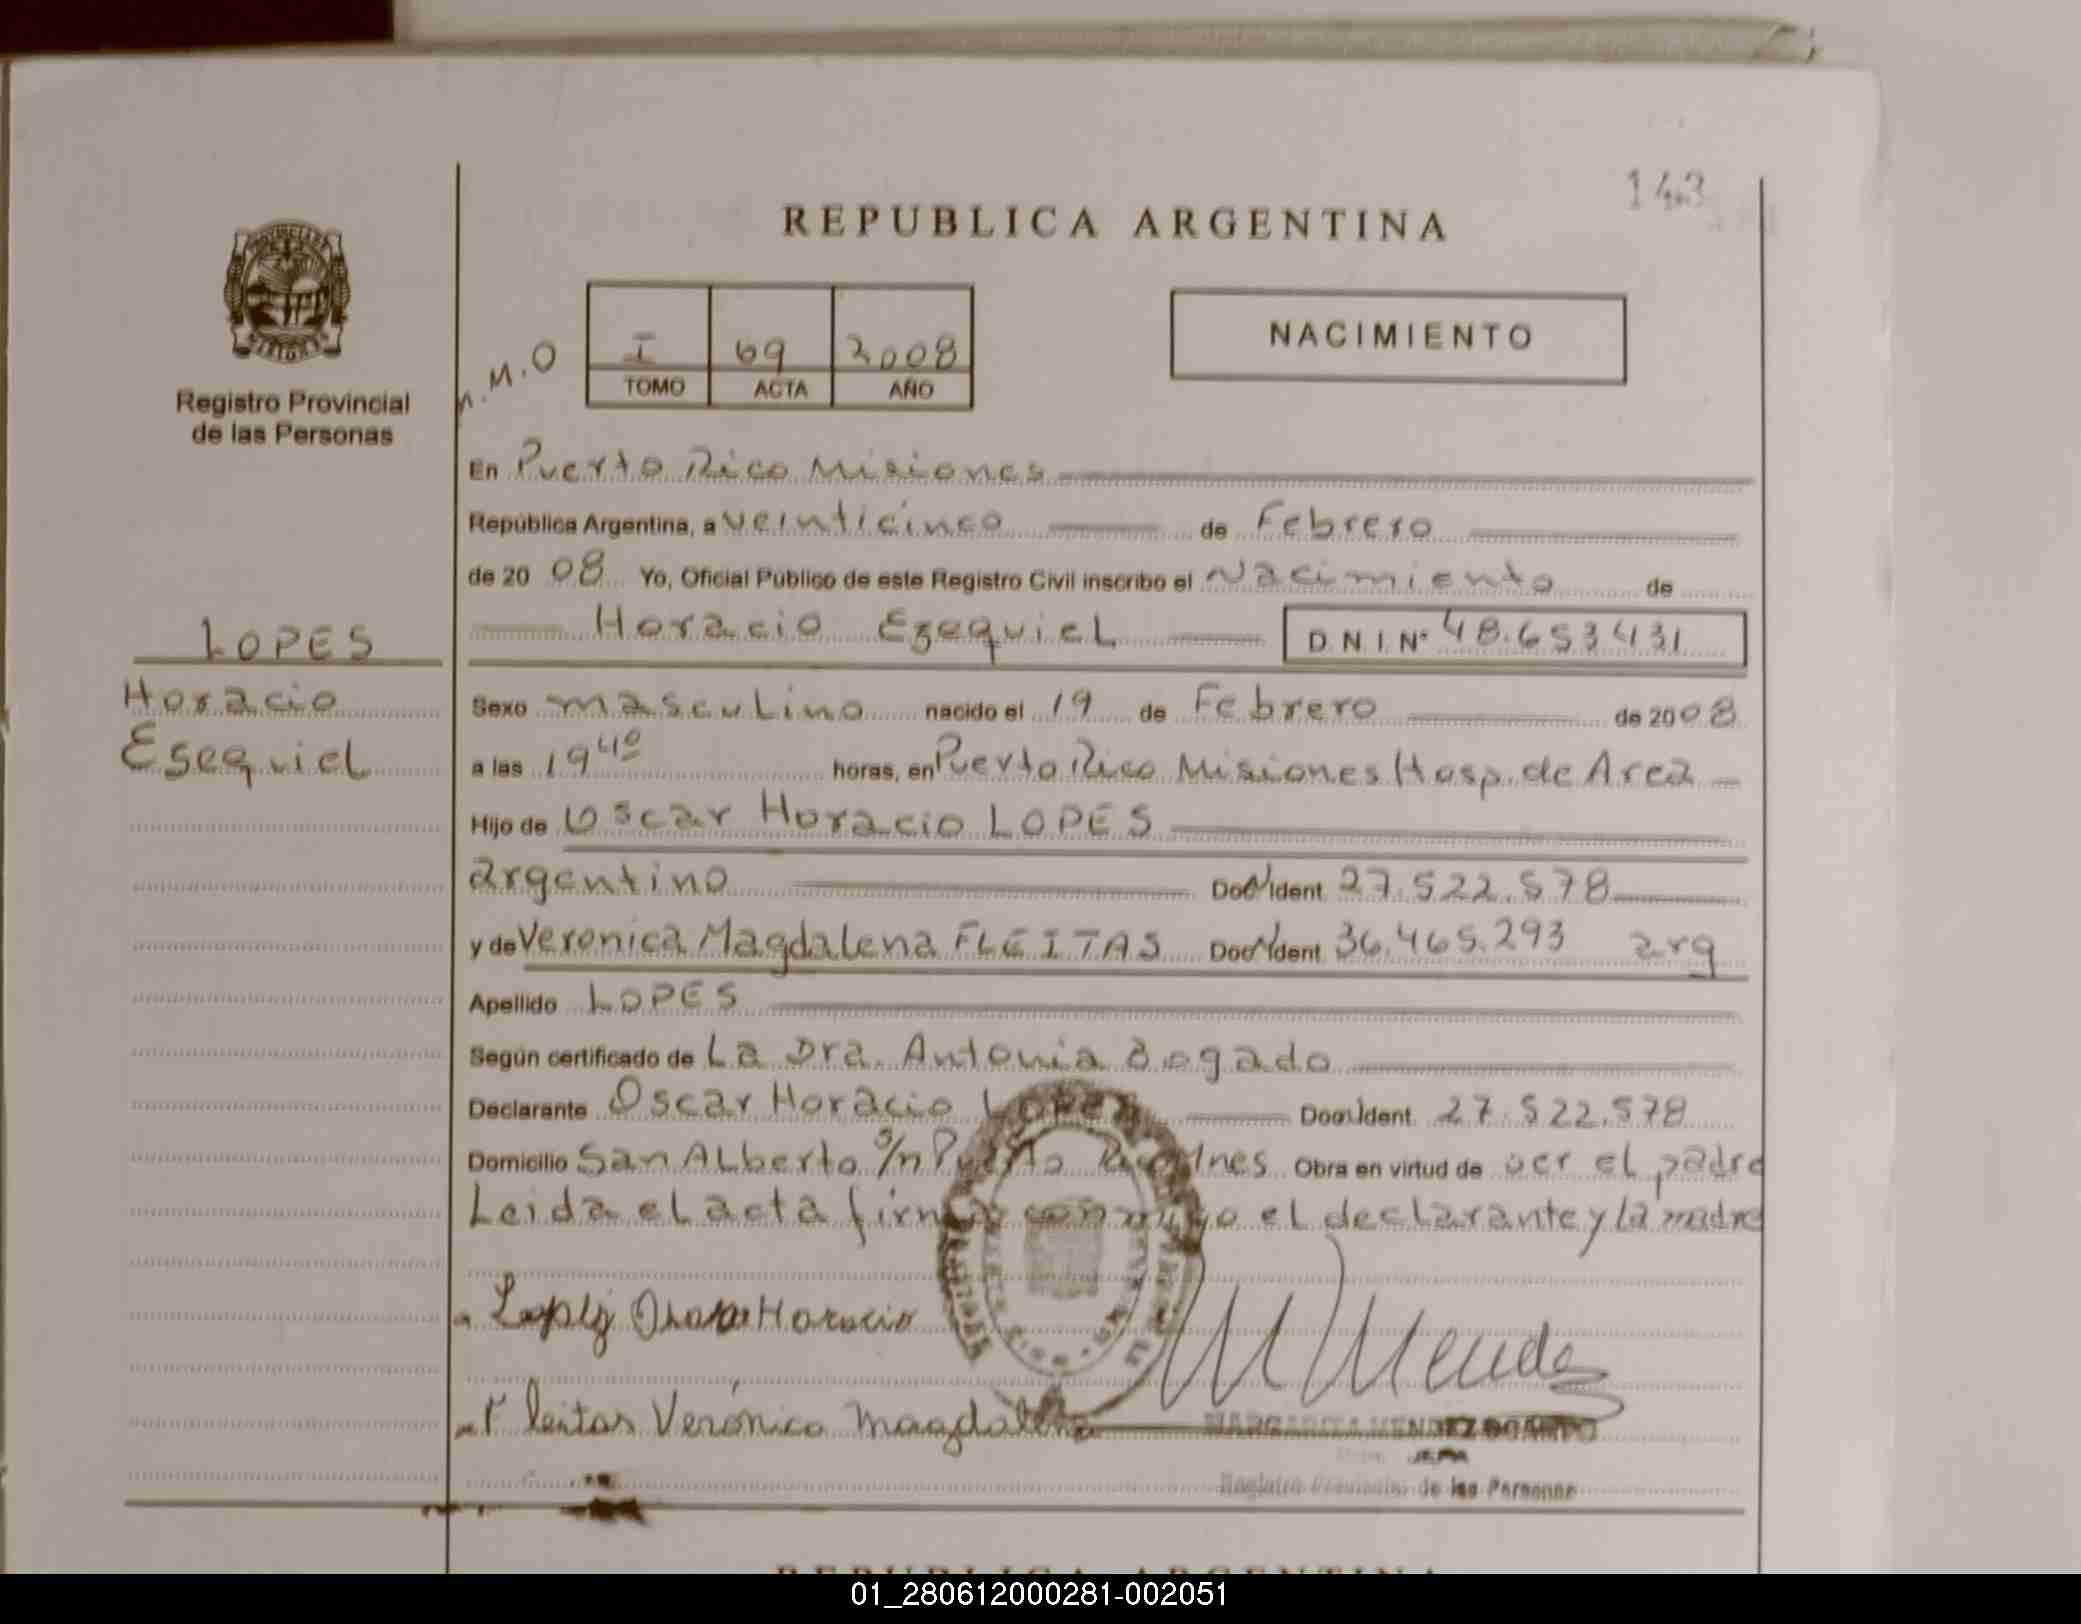 143
REPUBLICA ARGENTINA
PROVINCIA DE
MISIONES
Registro Provincial
de las Personas
M.O
I 69 2008
TOMO ACTA AÑO
NACIMIENTO
En Puerto Rico Misiones
República Argentina, a veinticinco de Febrero
de 2008 Yo, Oficial Público de este Registro Civil inscribo el Nacimiento de
Horacio Esequiel D.N.I.Nº 48.653431
LOPES
Horacio
Esequiel
Sexo masculino nacido el 19 de Febrero de 2008
a las 19 40 horas, en Puerto Rico Misiones Hosp. de Area
Hijo de Oscar Horacio LOPES
argentino Doc. Ident. 27.522.578
y de Veronica Magdalena FLEITAS Doc. Ident. 36.465.293 arg
Apellido LOPES
Según certificado de La Dra. Antonia Bogado
Declarante Oscar Horacio Lopes Doc. Ident. 27.522.578
Domicilio San Alberto s/n Puerto Rico Mnes Obra en virtud de ser el padre
Leida el acta firman conmigo el declarante y la madre
Horacio
M Mendez
Fleitas Verónica Magdalena
MARGARITA MENDEZ
JEFA
Registro Provincial de las Personas
REPUBLICA ARGENTINA
01_280612000281-002051